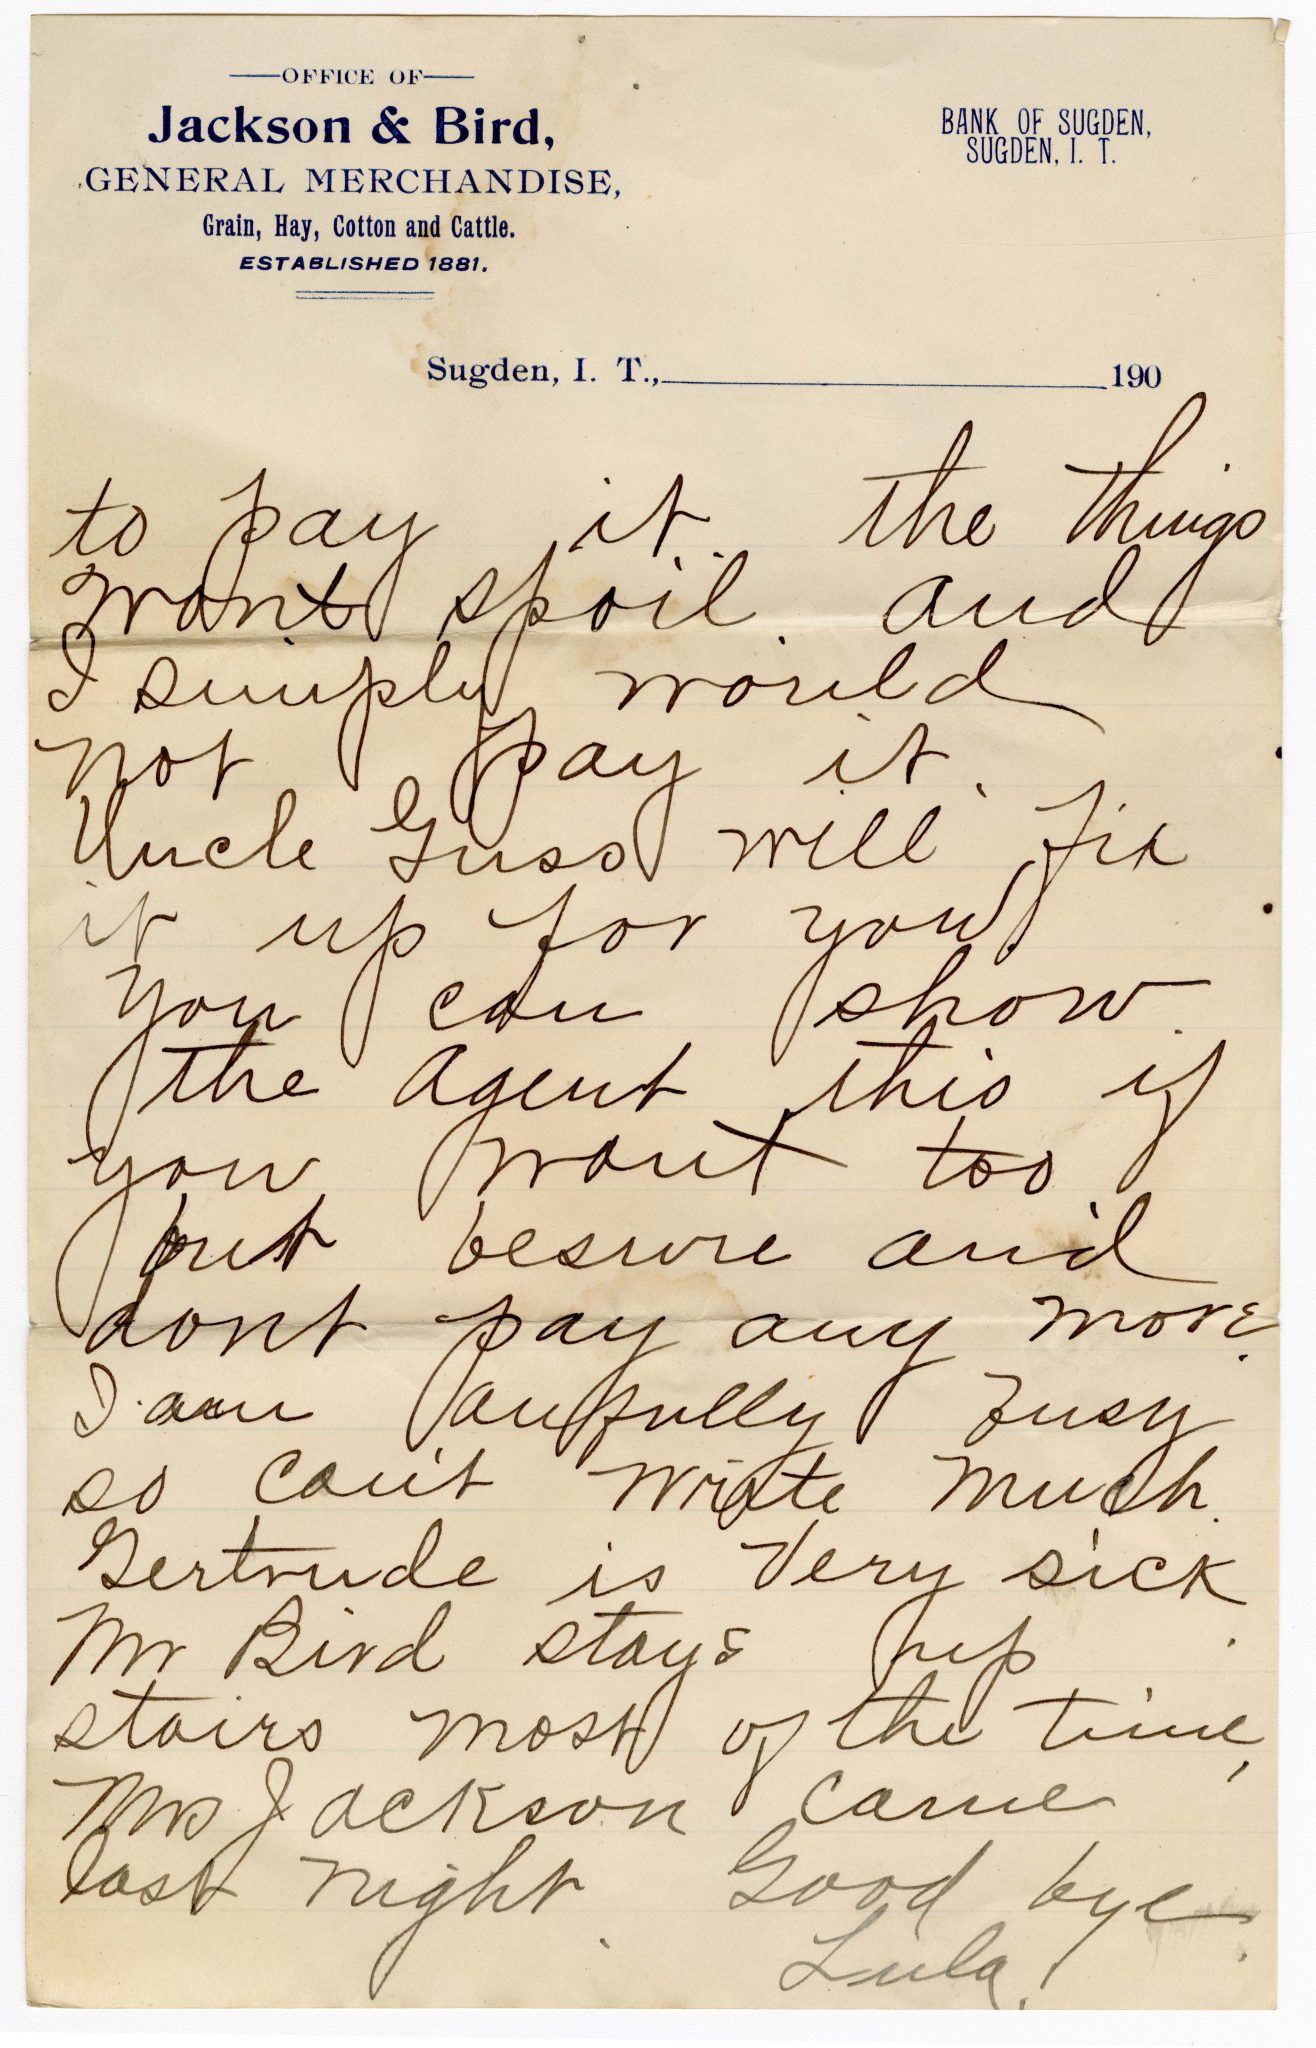 OFFICE OF
Jackson & Bird,
GENERAL MERCHANDISE,
Grain, Hay, Cotton and Cattle.
ESTABLISHED 1881.
BANK OF SUGDEN,
SUGDEN, I. T.
Sugden, I. T., 190
to pay it. the things
wont spoil. and
I simply would
not pay it.
Uncle Guss will fix
it up for you.
You can show
the agent this if
you want too
but besure and
dont pay any more.
I am aufully busy
so can't write much.
Gertrude is very sick
Mr Bird stays up
stairs most of the time,
Mrs Jackson came
last night. Good bye
Lula.